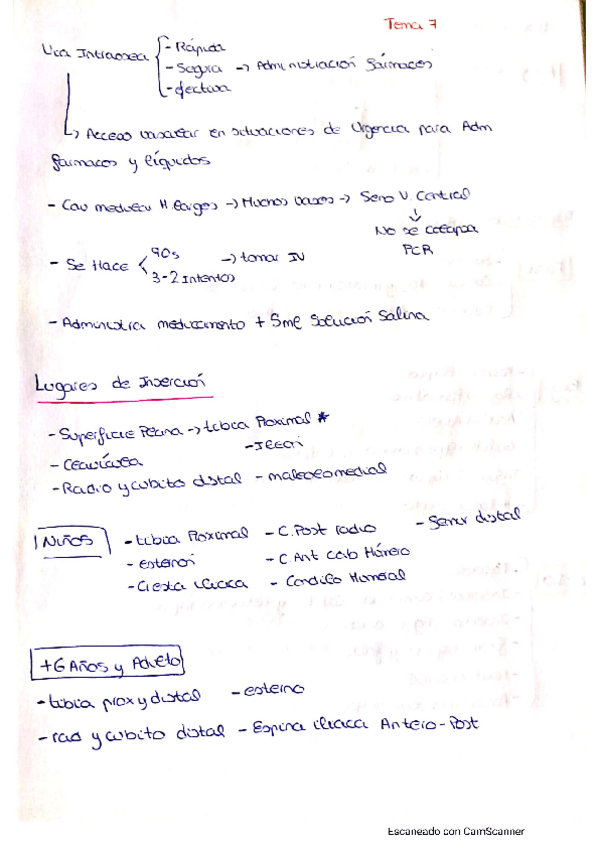 Tema 7
Vía Intraosea - Rápida
- Segura -> Administración fármacos
- efectiva
-> Acceso vascular en situaciones de Urgencia para Adm
fármacos y líquidos
- Cav medular H. largos -> Muchos vasos -> Seno V. Central
↓
No se colapsa
PCR
- Se Hace < 90s -> tomar IV
3-2 Intentos
- Administra medicamento + 5ml Solución Salina
Lugares de Inserción
- Superficie Plana -> tibia Proximal *
- Clavícula
- Radio y cubito distal - maleolo medial
Niños
- tibia Proximal - C. Post radio - Femur distal
- esternón - C. Ant Cab Húmero
- Cresta iliaca - Condilo Humeral
+6 Años y Adulto
- tibia prox y distal - esterno
- rad y cubito distal - Espina iliaca Antero-Post
Escaneado con CamScanner